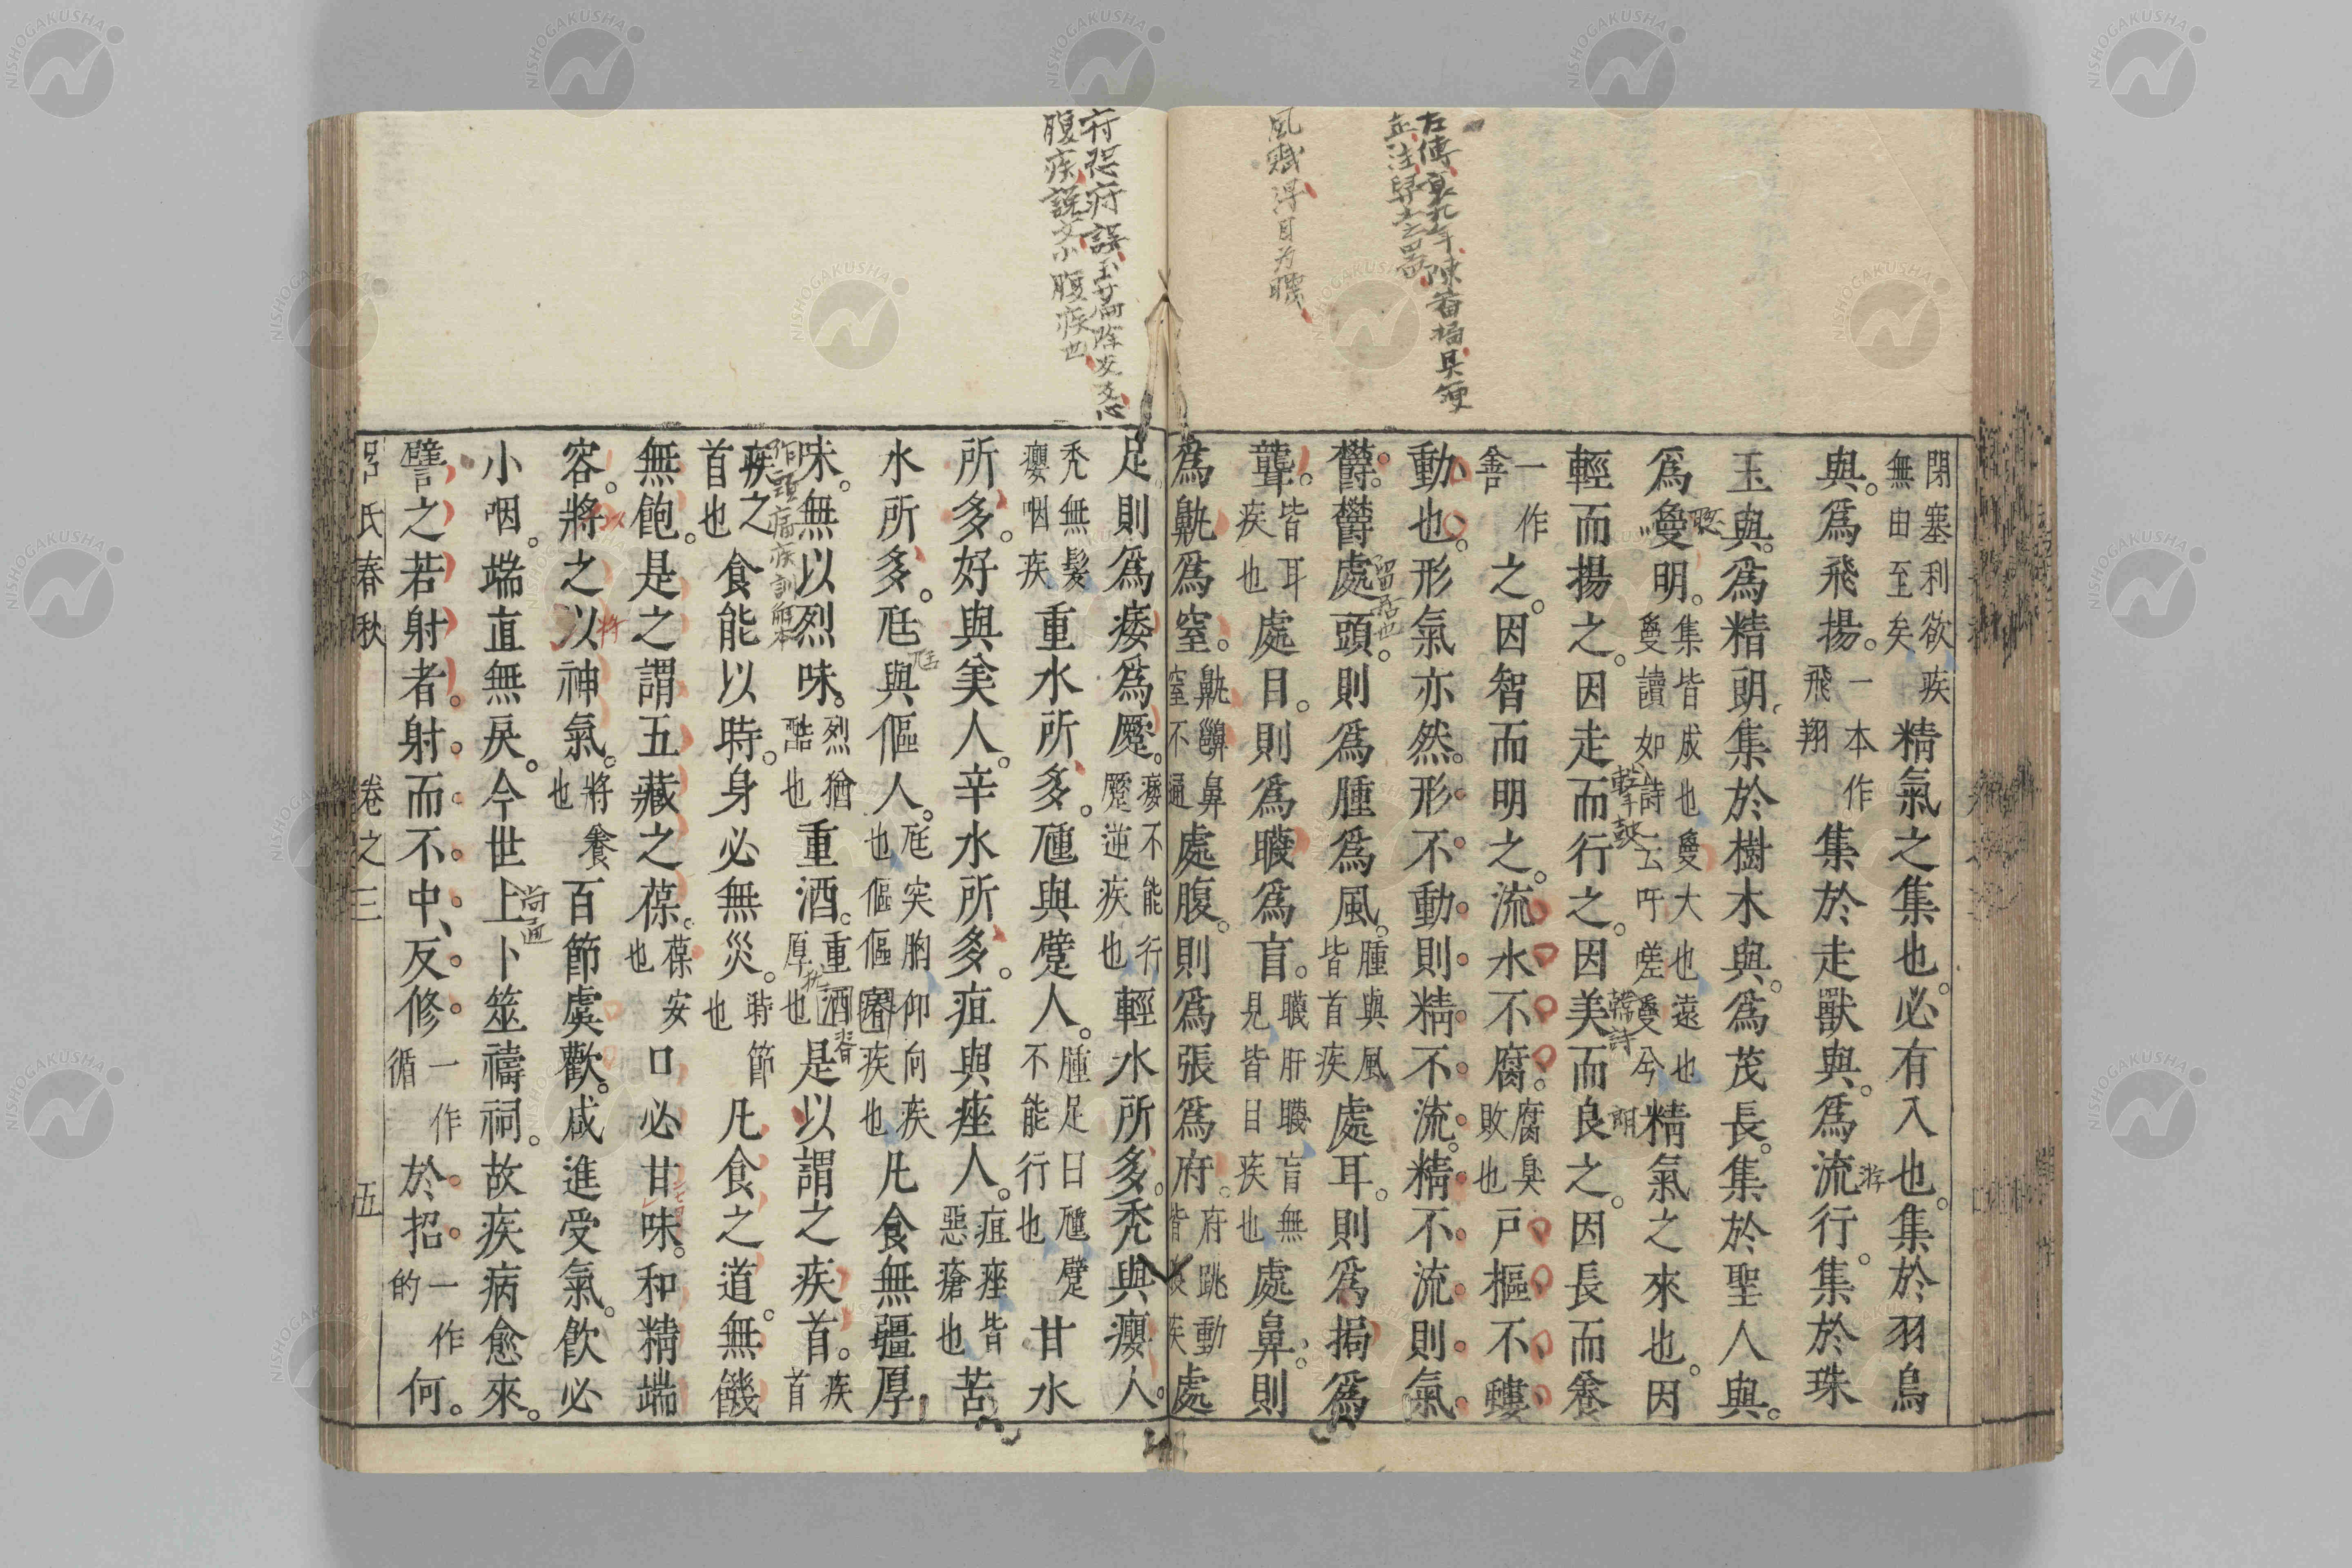 左傳哀九年陳
風賦得目為䁾
閉塞利欲疾無由至矣精氣之集也。必有入也。集於羽鳥
與。爲飛揚。一本作飛翔集於走獸與。爲流行。集於珠
玉與。爲精朗。集於樹木與。爲茂長。集於聖人與。
爲夐明。集皆成也夐大也遠也夐讀如詩云吁嗟夐兮精氣之來也。因
輕而揚之。因走而行之。因美而良之。因長而養
一作善之。因智而明之。流水不腐。腐臭敗也戶樞不螻
動也。形氣亦然。形不動則精不流。精不流則氣
鬱。鬱處頭。則爲腫爲風。腫與風皆首疾處耳。則爲挶爲
聾。皆耳疾也處目。則爲䁾爲盲。䁾肝䁾盲無見皆目疾也處鼻。則
爲鼽爲窒。鼽齆鼻窒不通處腹。則爲張爲府。府跳動皆腹疾處
腹疾說文小腹疾也
足則爲痿爲蹷。痿不能行蹷逆疾也輕水所多。禿與癭人。
禿無髮癭咽疾重水所多。尰與躄人。腫足曰尰躄不能行也甘水
所多。好與美人。辛水所多。疽與痤人。疽痤皆惡瘡也苦
水所多。尪與傴人。尪突胸仰向疾也傴傴瘠疾也凡食無彊厚
味。無以烈味。烈猶酷也重酒。重酒厚也是以謂之疾首。疾首
疾之首也食能以時。身必無災。時節也凡食之道。無饑
無飽。是之謂五藏之葆。葆安也口必甘味。和精端
容。將之以神氣。將養也百節虞歡。咸進受氣。飲必
小咽。端直無戾。今世上卜筮禱祠。故疾病愈來。
譬之若射者。射而不中、反修一作循於招一作的何。
呂氏春秋 卷之三 五